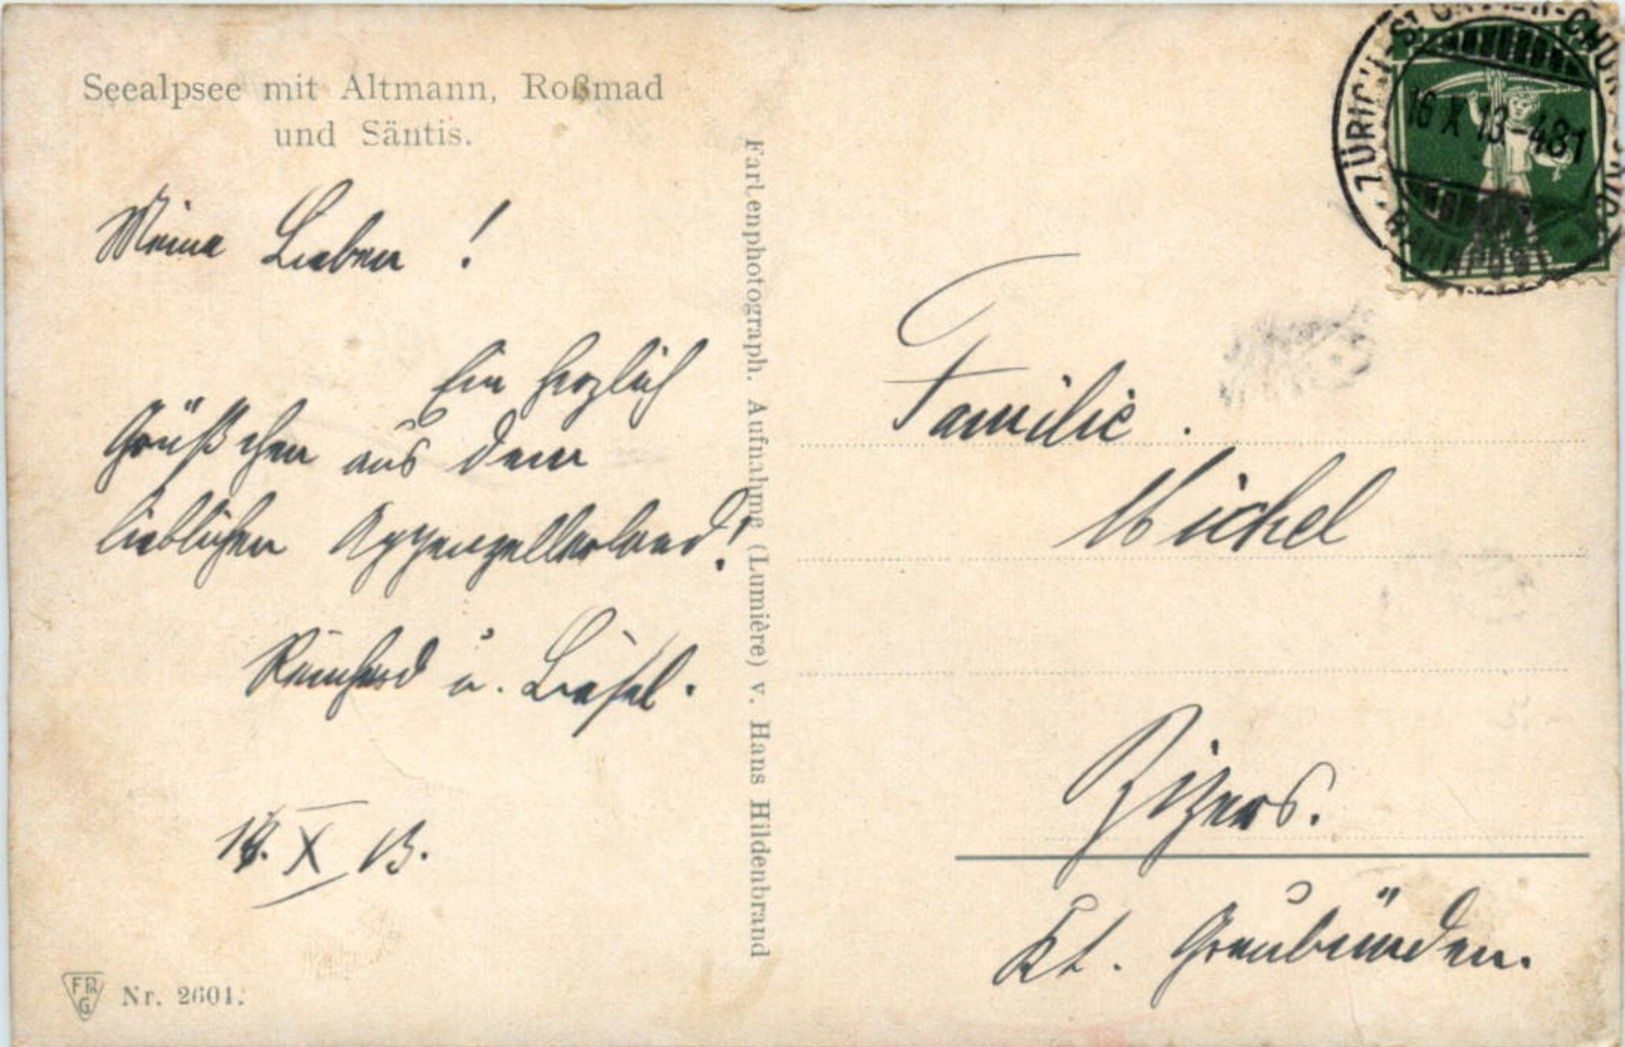 Seealpsee mit Altmann, Roßmad
und Säntis.
Meine Lieben !
Ein herzlich
Grüßchen aus dem
lieblichen Appenzellerland!
Reinhard u. Liesel.
X 13.
Nr. 2601.
Farbenphotograph. Aufnahme (Lumière) v. Hans Hildenbrand
16 X 13-481
ZÜRICH-
BAHNPOST
Familie.
Michel
Zizers.
Kt. Graubünden.